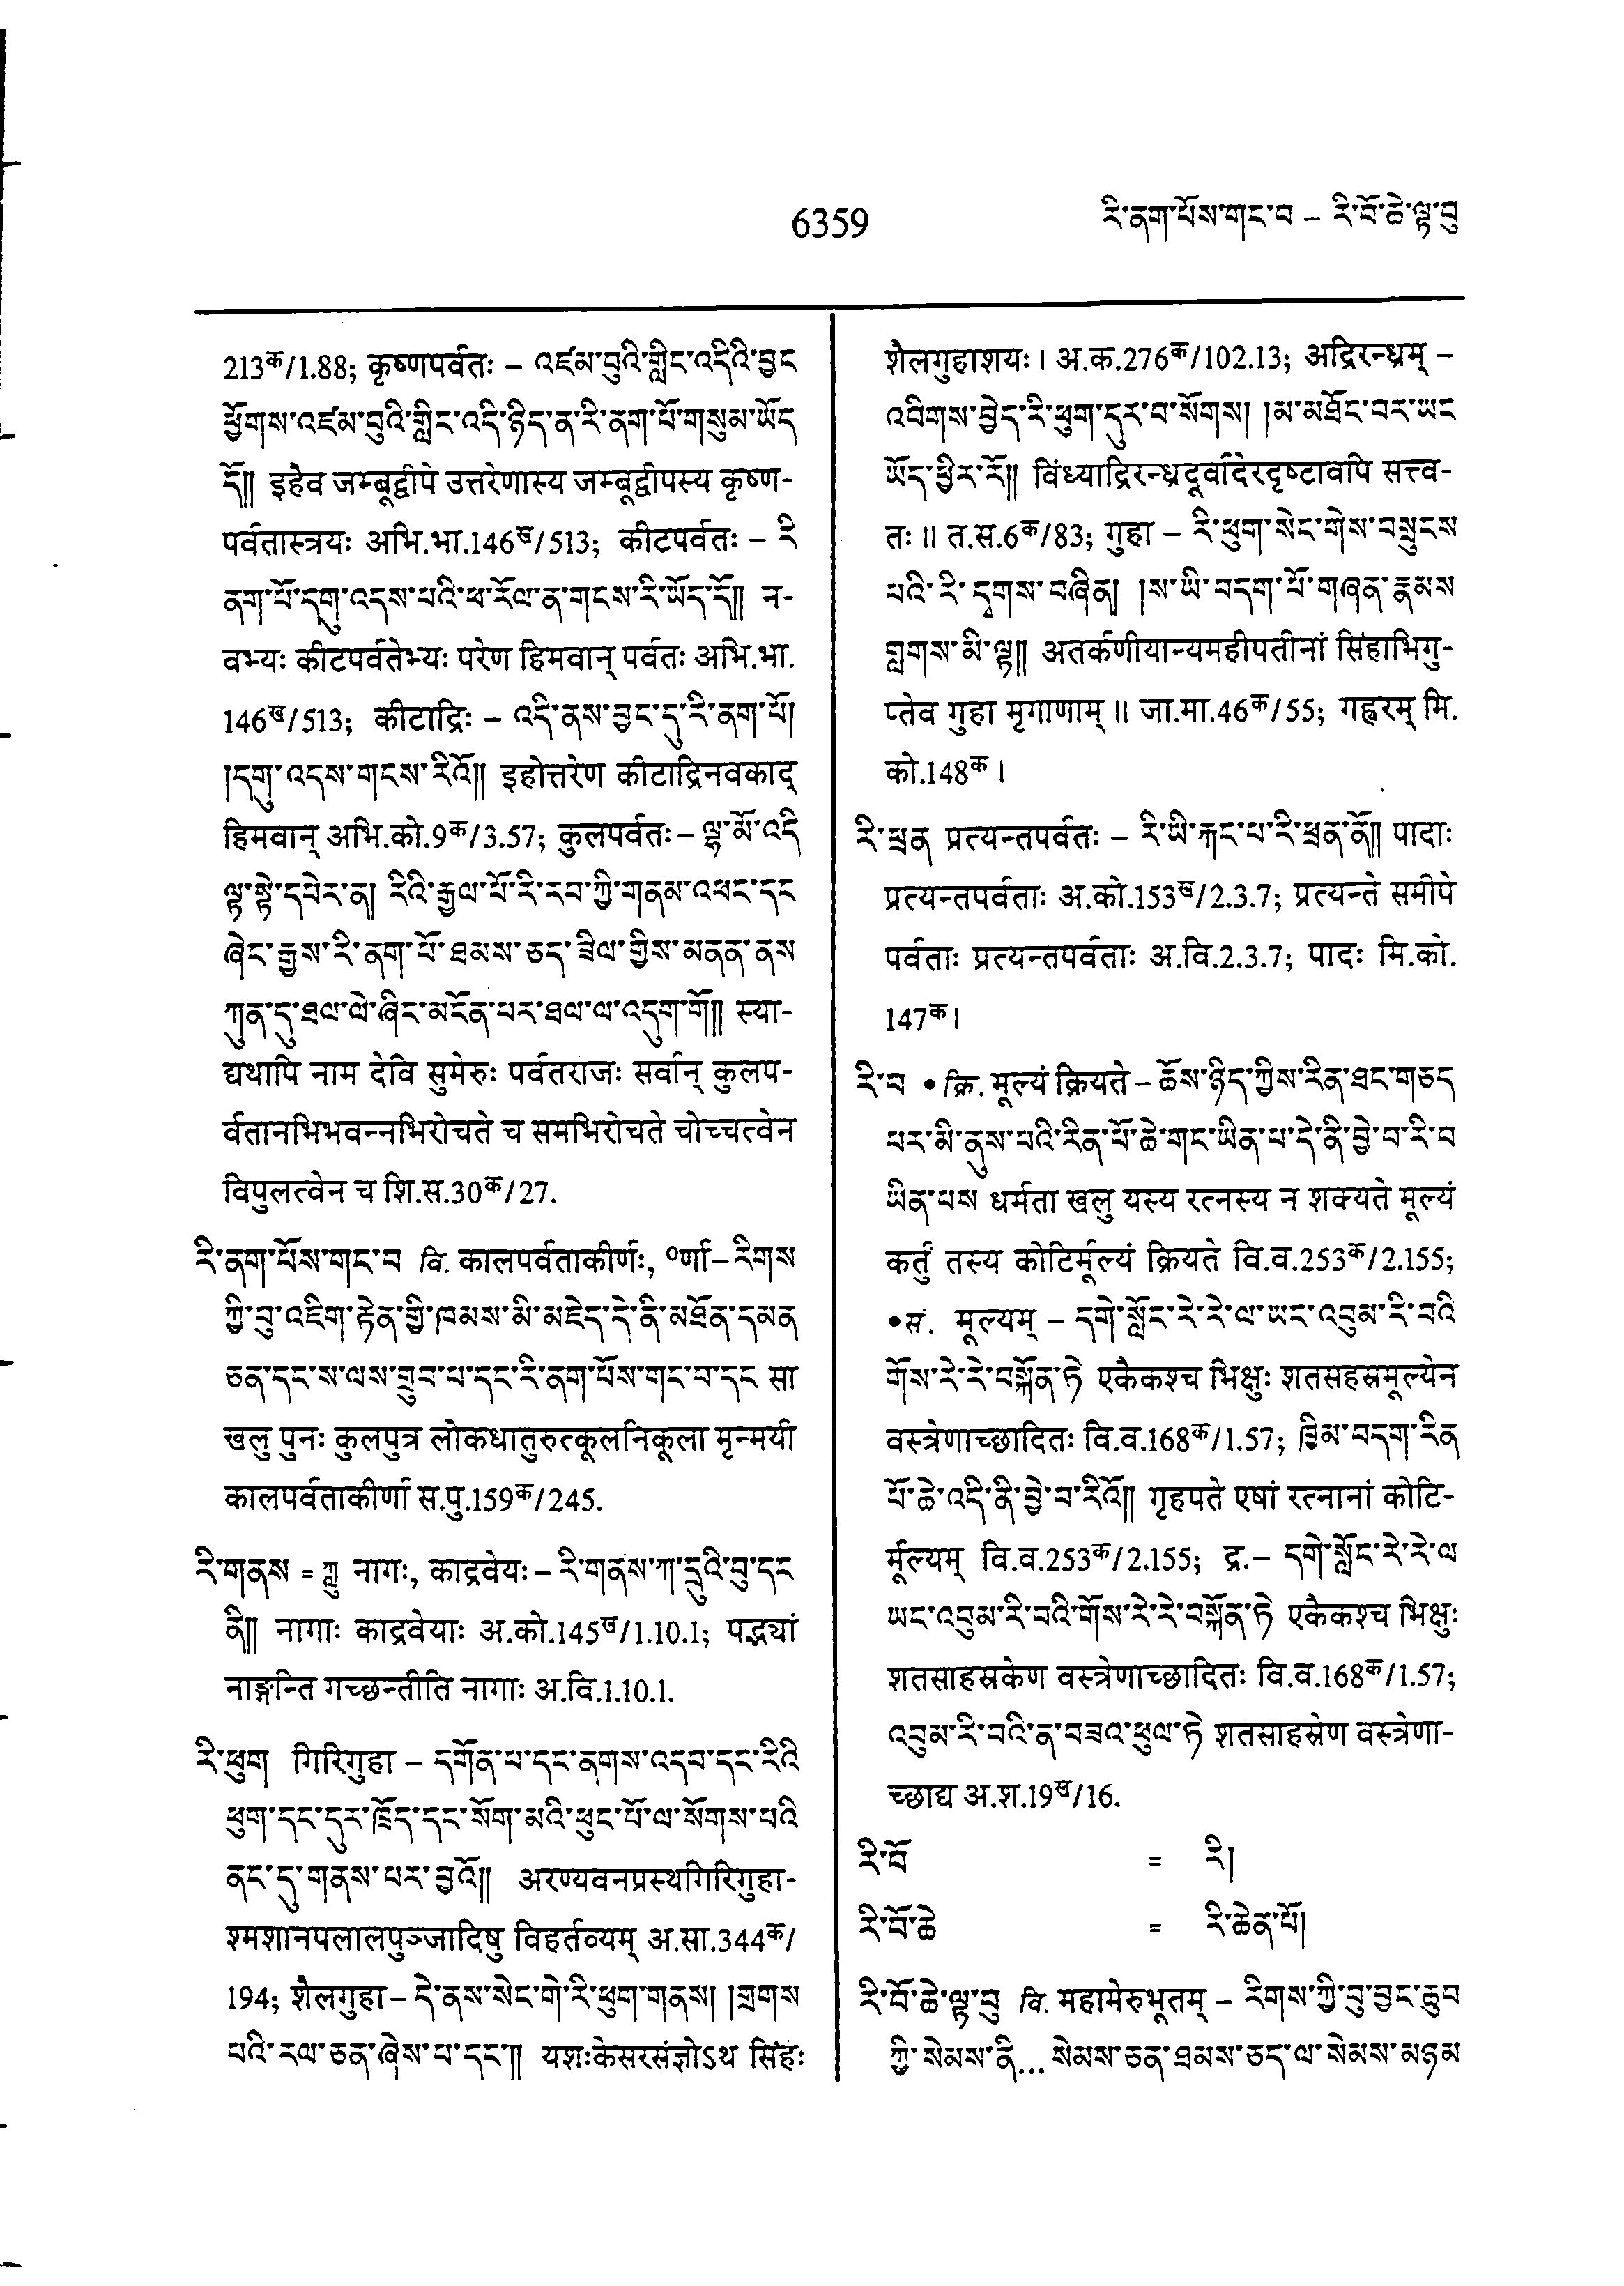 6359
རི་ནག་པོས་གང་བ – རི་བོ་ཆེ་ལྟ་བུ
213क/1.88; कृष्णपर्वतः – འཛམ་བུའི་གླིང་འདིའི་བྱང
ཕྱོགས་འཛམ་བུའི་གླིང་འདི་ཉིད་ན་རི་ནག་པོ་གསུམ་ཡོད
དོ༎ इहैव जम्बूद्वीपे उत्तरेणास्य जम्बूद्वीपस्य कृष्ण-
पर्वतास्त्रयः अभि.भा.146ख/513; कीटपर्वतः – རི
ནག་པོ་དགུ་འདས་པའི་ཕ་རོལ་ན་གངས་རི་ཡོད་དོ༎ न-
वभ्यः कीटपर्वतेभ्यः परेण हिमवान् पर्वतः अभि.भा.
146ख/513; कीटाद्रिः – འདི་ནས་བྱང་དུ་རི་ནག་པོ།
།དགུ་འདས་གངས་རིའོ༎ इहोत्तरेण कीटाद्रिनवकाद्
हिमवान् अभि.को.9क/3.57; कुलपर्वतः – ལྷ་མོ་འདི
ལྟ་སྟེ་དཔེར་ན། རིའི་རྒྱལ་པོ་རི་རབ་ཀྱི་གནམ་འཕང་དང
ཞེང་རྒྱས་རི་ནག་པོ་ཐམས་ཅད་ཟིལ་གྱིས་མནན་ནས
ཀུན་ཏུ་ཐལ་ལེ་ཞིང་མངོན་པར་ཐལ་ལ་འདུག་གོ༎ स्या-
द्यथापि नाम देवि सुमेरुः पर्वतराजः सर्वान् कुलप-
र्वतानभिभवन्नभिरोचते च समभिरोचते चोच्चत्वेन
विपुलत्वेन च शि.स.30क/27.
རི་ནག་པོས་གང་བ वि. कालपर्वताकीर्णः, ०र्णा – རིགས
ཀྱི་བུ་འཇིག་རྟེན་གྱི་ཁམས་མི་མཇེད་དེ་ནི་མཐོན་དམན
ཅན་དང་ས་ལས་གྲུབ་པ་དང་རི་ནག་པོས་གང་བ་དང सा
खलु पुनः कुलपुत्र लोकधातुरुत्कूलनिकूला मृन्मयी
कालपर्वताकीर्णा स.पु.159क/245.
རི་གནས = ཀླུ नागः, काद्रवेयः – རི་གནས་ཀ་དྲུའི་བུ་དང
ནི༎ नागाः काद्रवेयाः अ.को.145ख/1.10.1; पद्भ्यां
नाङ्गन्ति गच्छन्तीति नागाः अ.वि.1.10.1.
རི་ཕུག गिरिगुहा – དགོན་པ་དང་ནགས་འདབ་དང་རིའི
ཕུག་དང་དུར་ཁྲོད་དང་སོག་མའི་ཕུང་པོ་ལ་སོགས་པའི
ནང་དུ་གནས་པར་བྱའོ༎ अरण्यवनप्रस्थगिरिगुहा-
श्मशानपलालपुञ्जादिषु विहर्तव्यम् अ.सा.344क/
194; शैलगुहा – དེ་ནས་སེང་གེ་རི་ཕུག་གནས། །གྲགས
པའི་རལ་ཅན་ཞེས་པ་དང་༎ यशःकेसरसंज्ञोऽथ सिंहः
शैलगुहाशयः। अ.क.276क/102.13; अद्रिरन्ध्रम् –
འབིགས་བྱེད་རི་ཕུག་དུར་བ་སོགས། །མ་མཐོང་བར་ཡང
ཡོད་ཕྱིར་རོ༎ विंध्याद्रिरन्ध्रदूर्वादेरदृष्टावपि सत्त्व-
तः॥ त.स.6क/83; गुहा – རི་ཕུག་སེང་གེས་བསྲུངས
པའི་རི་དྭགས་བཞིན། །ས་ཡི་བདག་པོ་གཞན་རྣམས
གླགས་མི་ལྟ༎ अतर्कणीयान्यमहीपतीनां सिंहाभिगु-
प्तेव गुहा मृगाणाम्॥ जा.मा.46क/55; गह्वरम् मि.
को.148क।
རི་ཕྲན प्रत्यन्तपर्वतः – རི་ཡི་རྐང་པ་རི་ཕྲན་ནོ༎ पादाः
प्रत्यन्तपर्वताः अ.को.153ख/2.3.7; प्रत्यन्ते समीपे
पर्वताः प्रत्यन्तपर्वताः अ.वि.2.3.7; पादः मि.को.
147क।
རི་བ • क्रि. मूल्यं क्रियते – ཆོས་ཉིད་ཀྱིས་རིན་ཐང་གཅད
པར་མི་ནུས་པའི་རིན་པོ་ཆེ་གང་ཡིན་པ་དེ་ནི་བྱེ་བ་རི་བ
ཡིན་པས धर्मता खलु यस्य रत्नस्य न शक्यते मूल्यं
कर्तुं तस्य कोटिर्मूल्यं क्रियते वि.व.253क/2.155;
•सं. मूल्यम् – དགེ་སློང་རེ་རེ་ལ་ཡང་འབུམ་རི་བའི
གོས་རེ་རེ་བསྐོན་ཏེ एकैकश्च भिक्षुः शतसहस्रमूल्येन
वस्त्रेणाच्छादितः वि.व.168क/1.57; ཁྱིམ་བདག་རིན
པོ་ཆེ་འདི་ནི་བྱེ་བ་རིའོ༎ गृहपते एषां रत्नानां कोटि-
र्मूल्यम् वि.व.253क/2.155; द्र.– དགེ་སློང་རེ་རེ་ལ
ཡང་འབུམ་རི་བའི་གོས་རེ་རེ་བསྐོན་ཏེ एकैकश्च भिक्षुः
शतसाहस्रकेण वस्त्रेणाच्छादितः वि.व.168क/1.57;
འབུམ་རི་བའི་ན་བཟའ་ཕུལ་ཏེ शतसाहस्रेण वस्त्रेणा-
च्छाद्य अ.श.19ख/16.
རི་བོ = རི།
རི་བོ་ཆེ = རི་ཆེན་པོ།
རི་བོ་ཆེ་ལྟ་བུ वि. महामेरुभूतम् – རིགས་ཀྱི་བུ་བྱང་ཆུབ
ཀྱི་སེམས་ནི... སེམས་ཅན་ཐམས་ཅད་ལ་སེམས་མཉམ